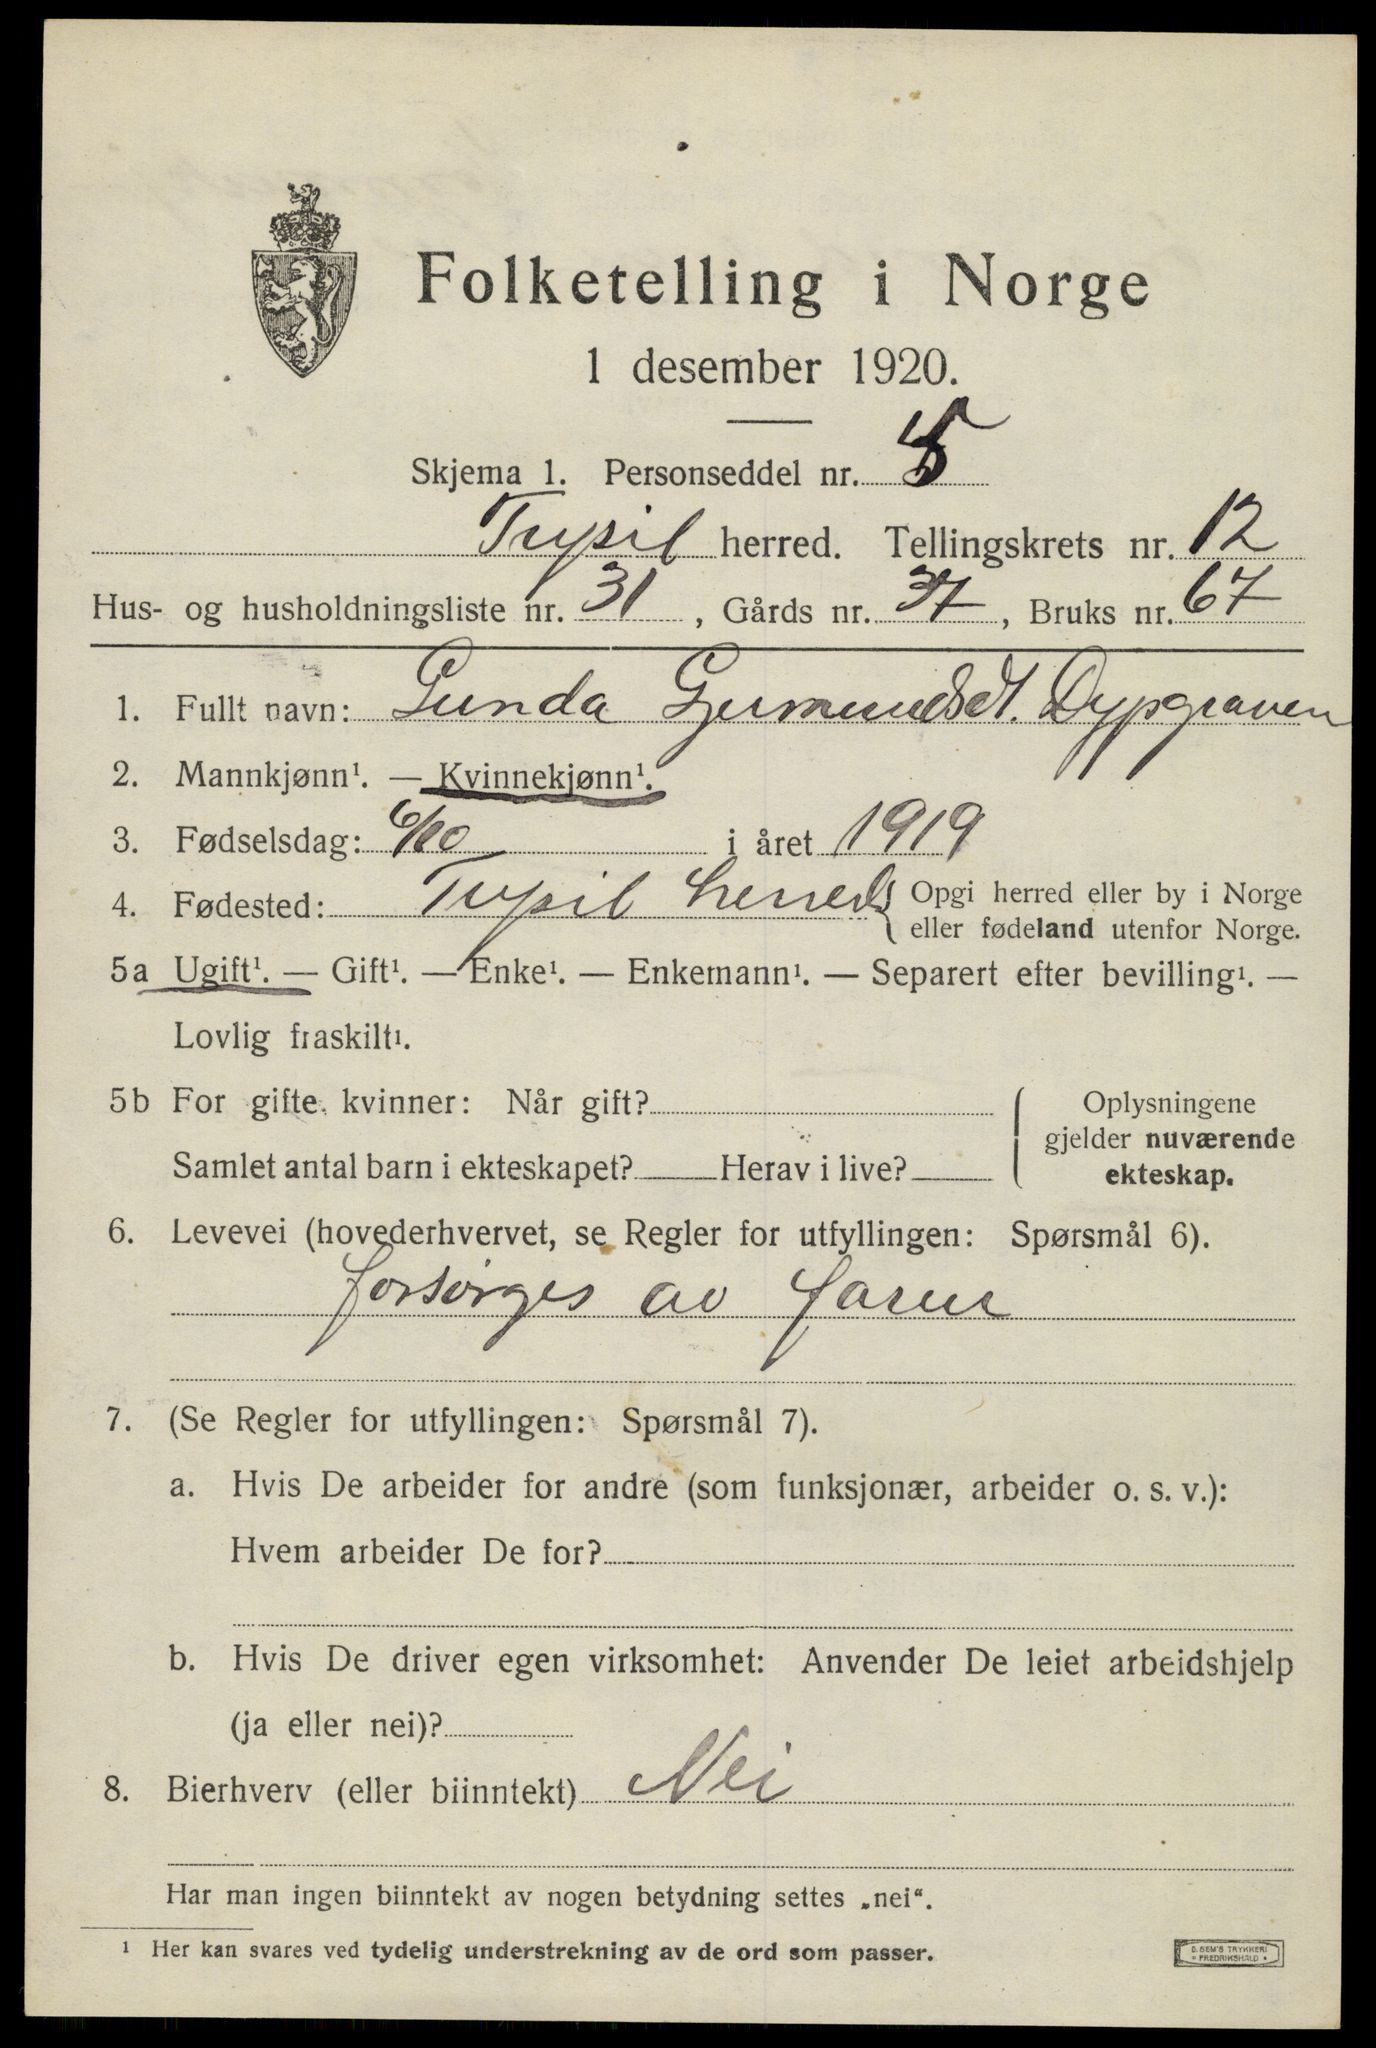 Folketelling i Norge
1 desember 1920.
Skjema 1. Personseddel nr. 5
Trysil herred. Tellingskrets nr. 12
Hus- og husholdningsliste nr. 31, Gårds nr. 37, Bruks nr. 67
1. Fullt navn: Gunda Gjermundsdt. Dypgraven
2. Mannkjønn¹. — Kvinnekjønn¹.
3. Fødselsdag: 6/10 i året 1919
4. Fødested: Trysil herred { Opgi herred eller by i Norge
eller fødeland utenfor Norge.
5a Ugift¹. — Gift¹. — Enke¹. — Enkemann¹. — Separert efter bevilling¹. —
Lovlig fraskilt¹.
5b For gifte kvinner: Når gift?
Samlet antal barn i ekteskapet? Herav i live?
{ Oplysningene
gjelder nuværende
ekteskap.
6. Levevei (hovederhvervet, se Regler for utfyllingen: Spørsmål 6).
forsørges av faren
7. (Se Regler for utfyllingen: Spørsmål 7).
a. Hvis De arbeider for andre (som funksjonær, arbeider o. s. v.):
Hvem arbeider De for?
b. Hvis De driver egen virksomhet: Anvender De leiet arbeidshjelp
(ja eller nei)?
8. Bierhverv (eller biinntekt) Nei
Har man ingen biinntekt av nogen betydning settes „nei“.
¹ Her kan svares ved tydelig understrekning av de ord som passer.
E. SEM'S TRYKKERI
FREDRIKSHALD